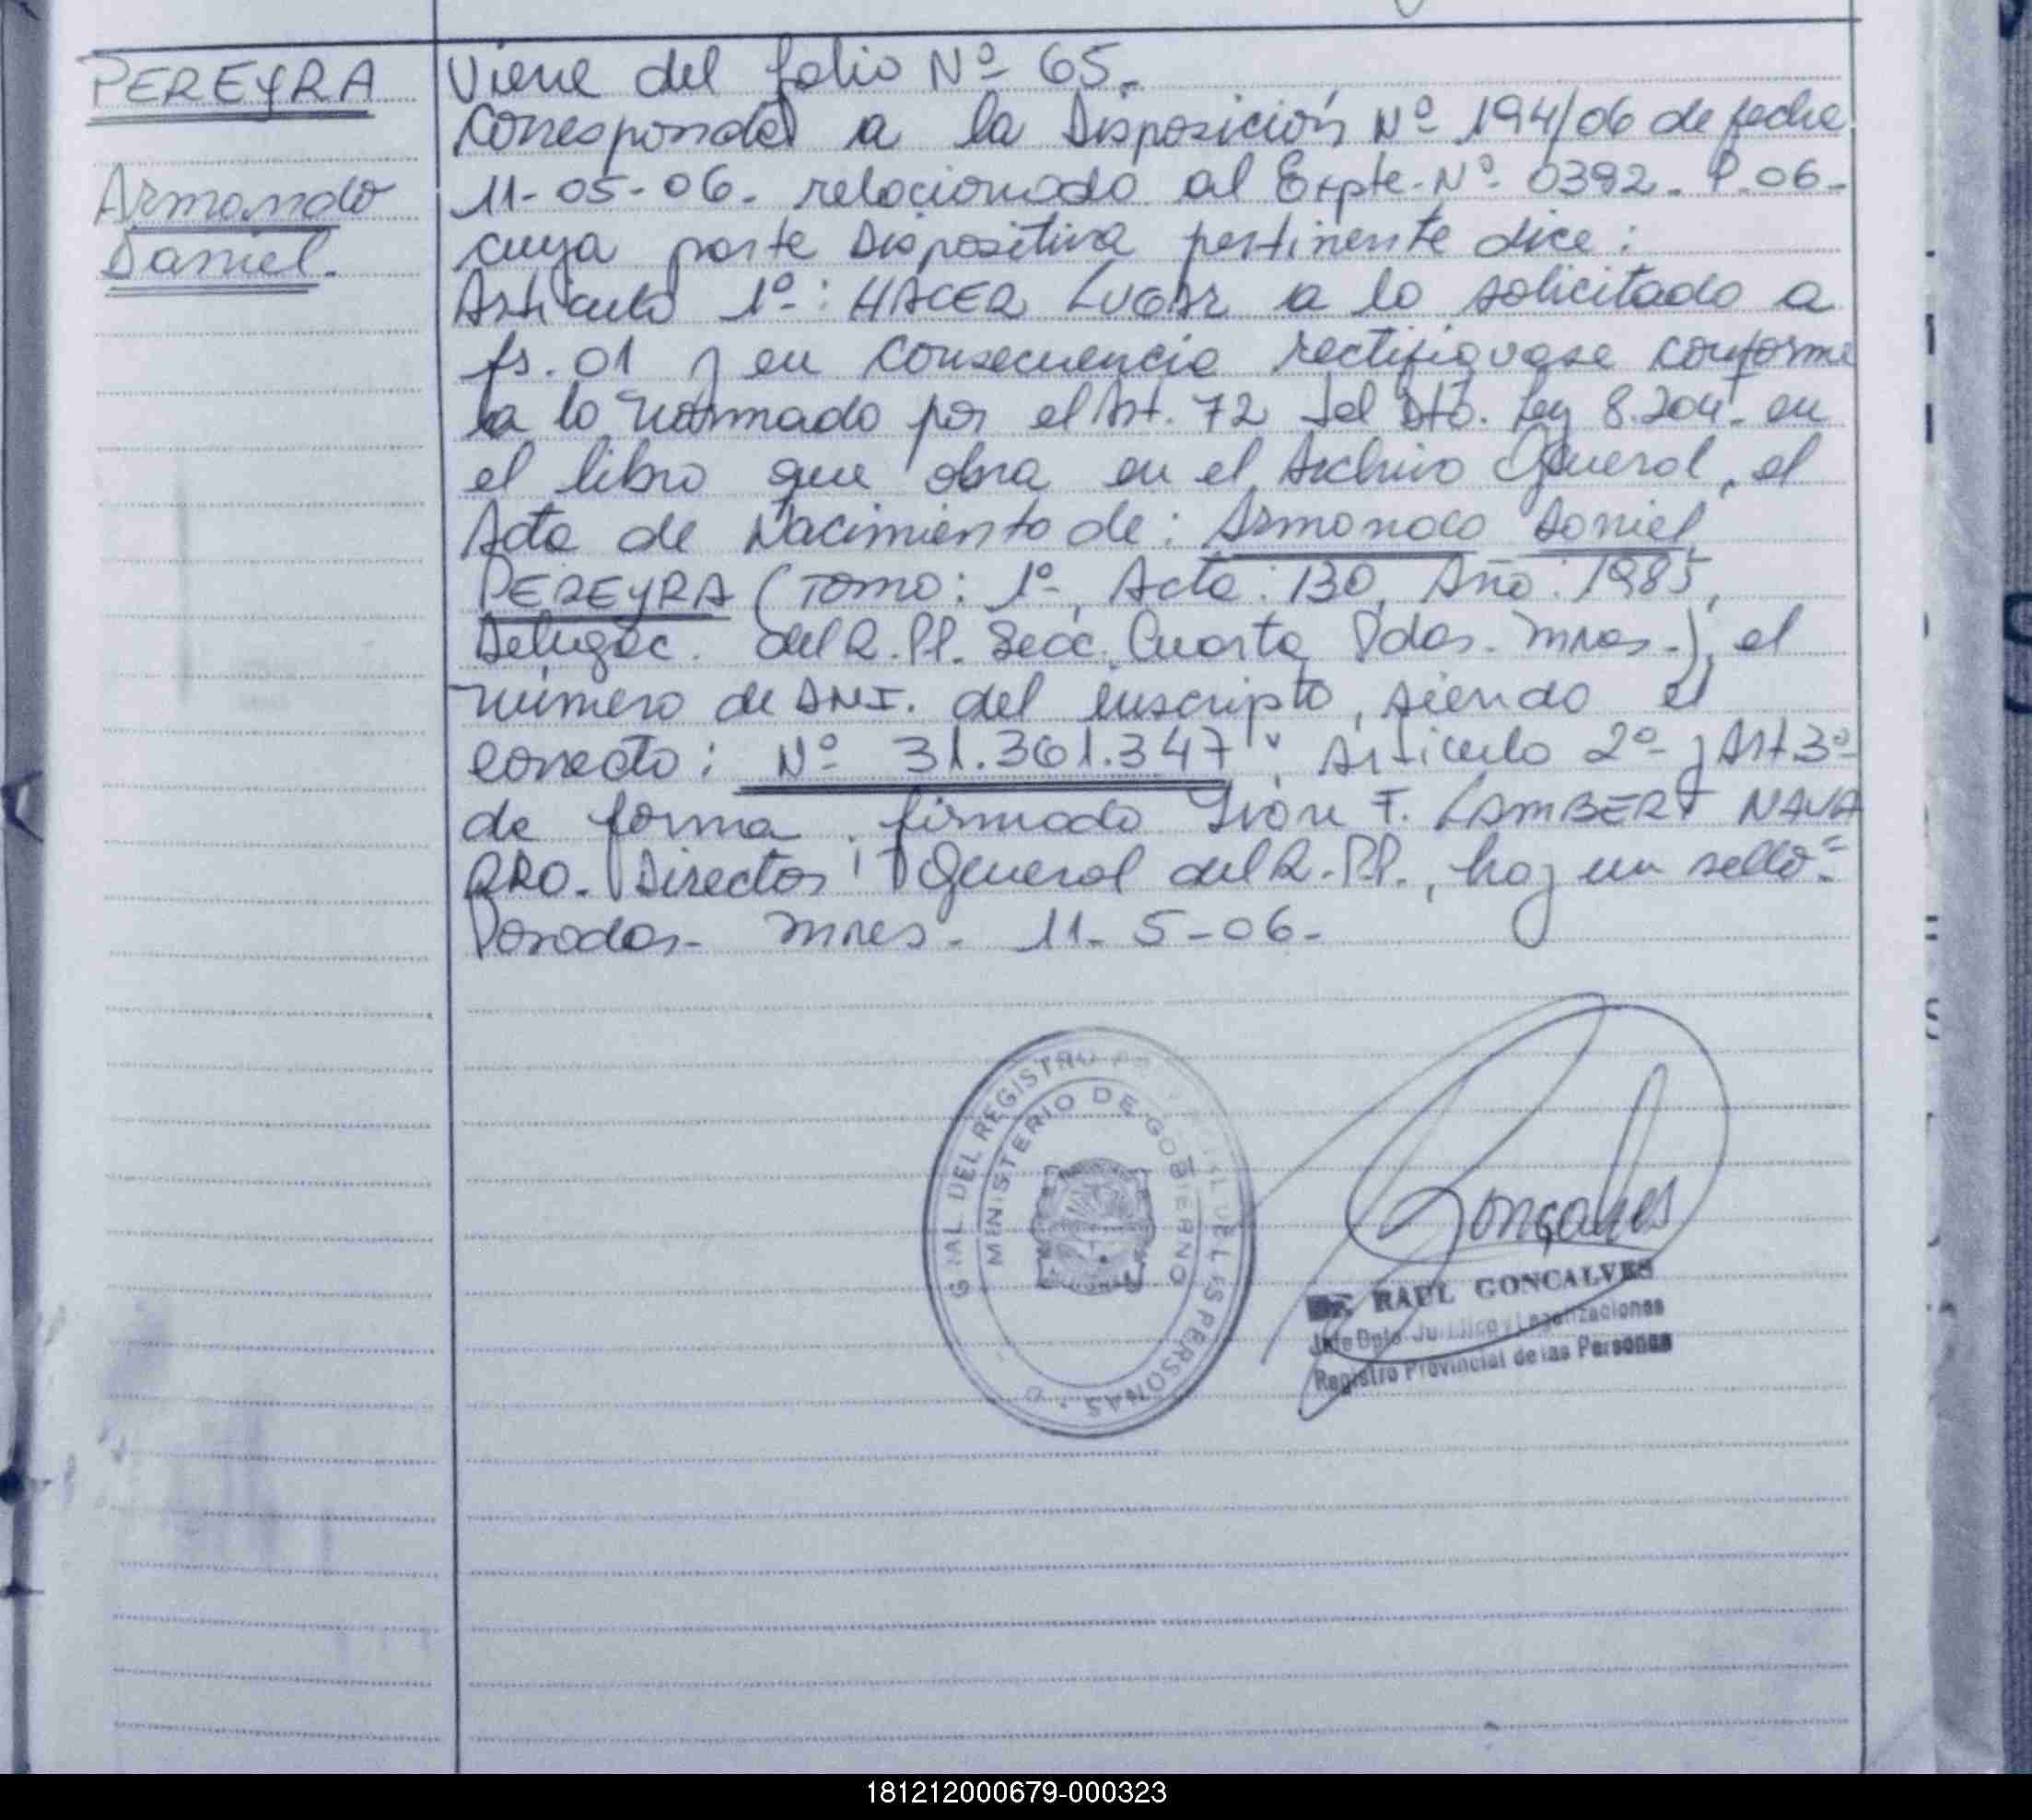 PEREYRA
Armando
Daniel.
Viene del folio Nº 65.
Corresponde a la Disposición Nº 194/06 de fecha
11-05-06. relacionado al Expte. Nº 0392. P. 06-
cuya parte Dispositiva pertinente dice:
Artículo 1º: HACER LUGAR a lo solicitado a
fs. 01 y en consecuencia rectifiquese conforme
a lo normado por el Art. 72 del Dto. Ley 8.204 en
el libro que obra en el Archivo General, el
Acta de Nacimiento de: Armando Daniel
PEREYRA (Tomo: 1º, Acta: 130, Año: 1985,
Delegac. del R.PP. Secc. Cuarta Pdas. Mnes.), el
número de DNI. del inscripto, siendo el
correcto: Nº 31.361.347". Artículo 2º y Art 3º
de forma. firmado Ivone F. LAMBERT NAVA
RRO. Director General del R.PP., hay un sello=
Posadas- Mnes. 11-5-06-
GRAL. DEL REGISTRO PROVINCIAL DE LAS PERSONAS
MINISTERIO DE GOBIERNO
Gonçalves
RAUL GONCALVES
Jefe Dpto. Jurídico y Legalizaciones
Registro Provincial de las Personas
181212000679-000323